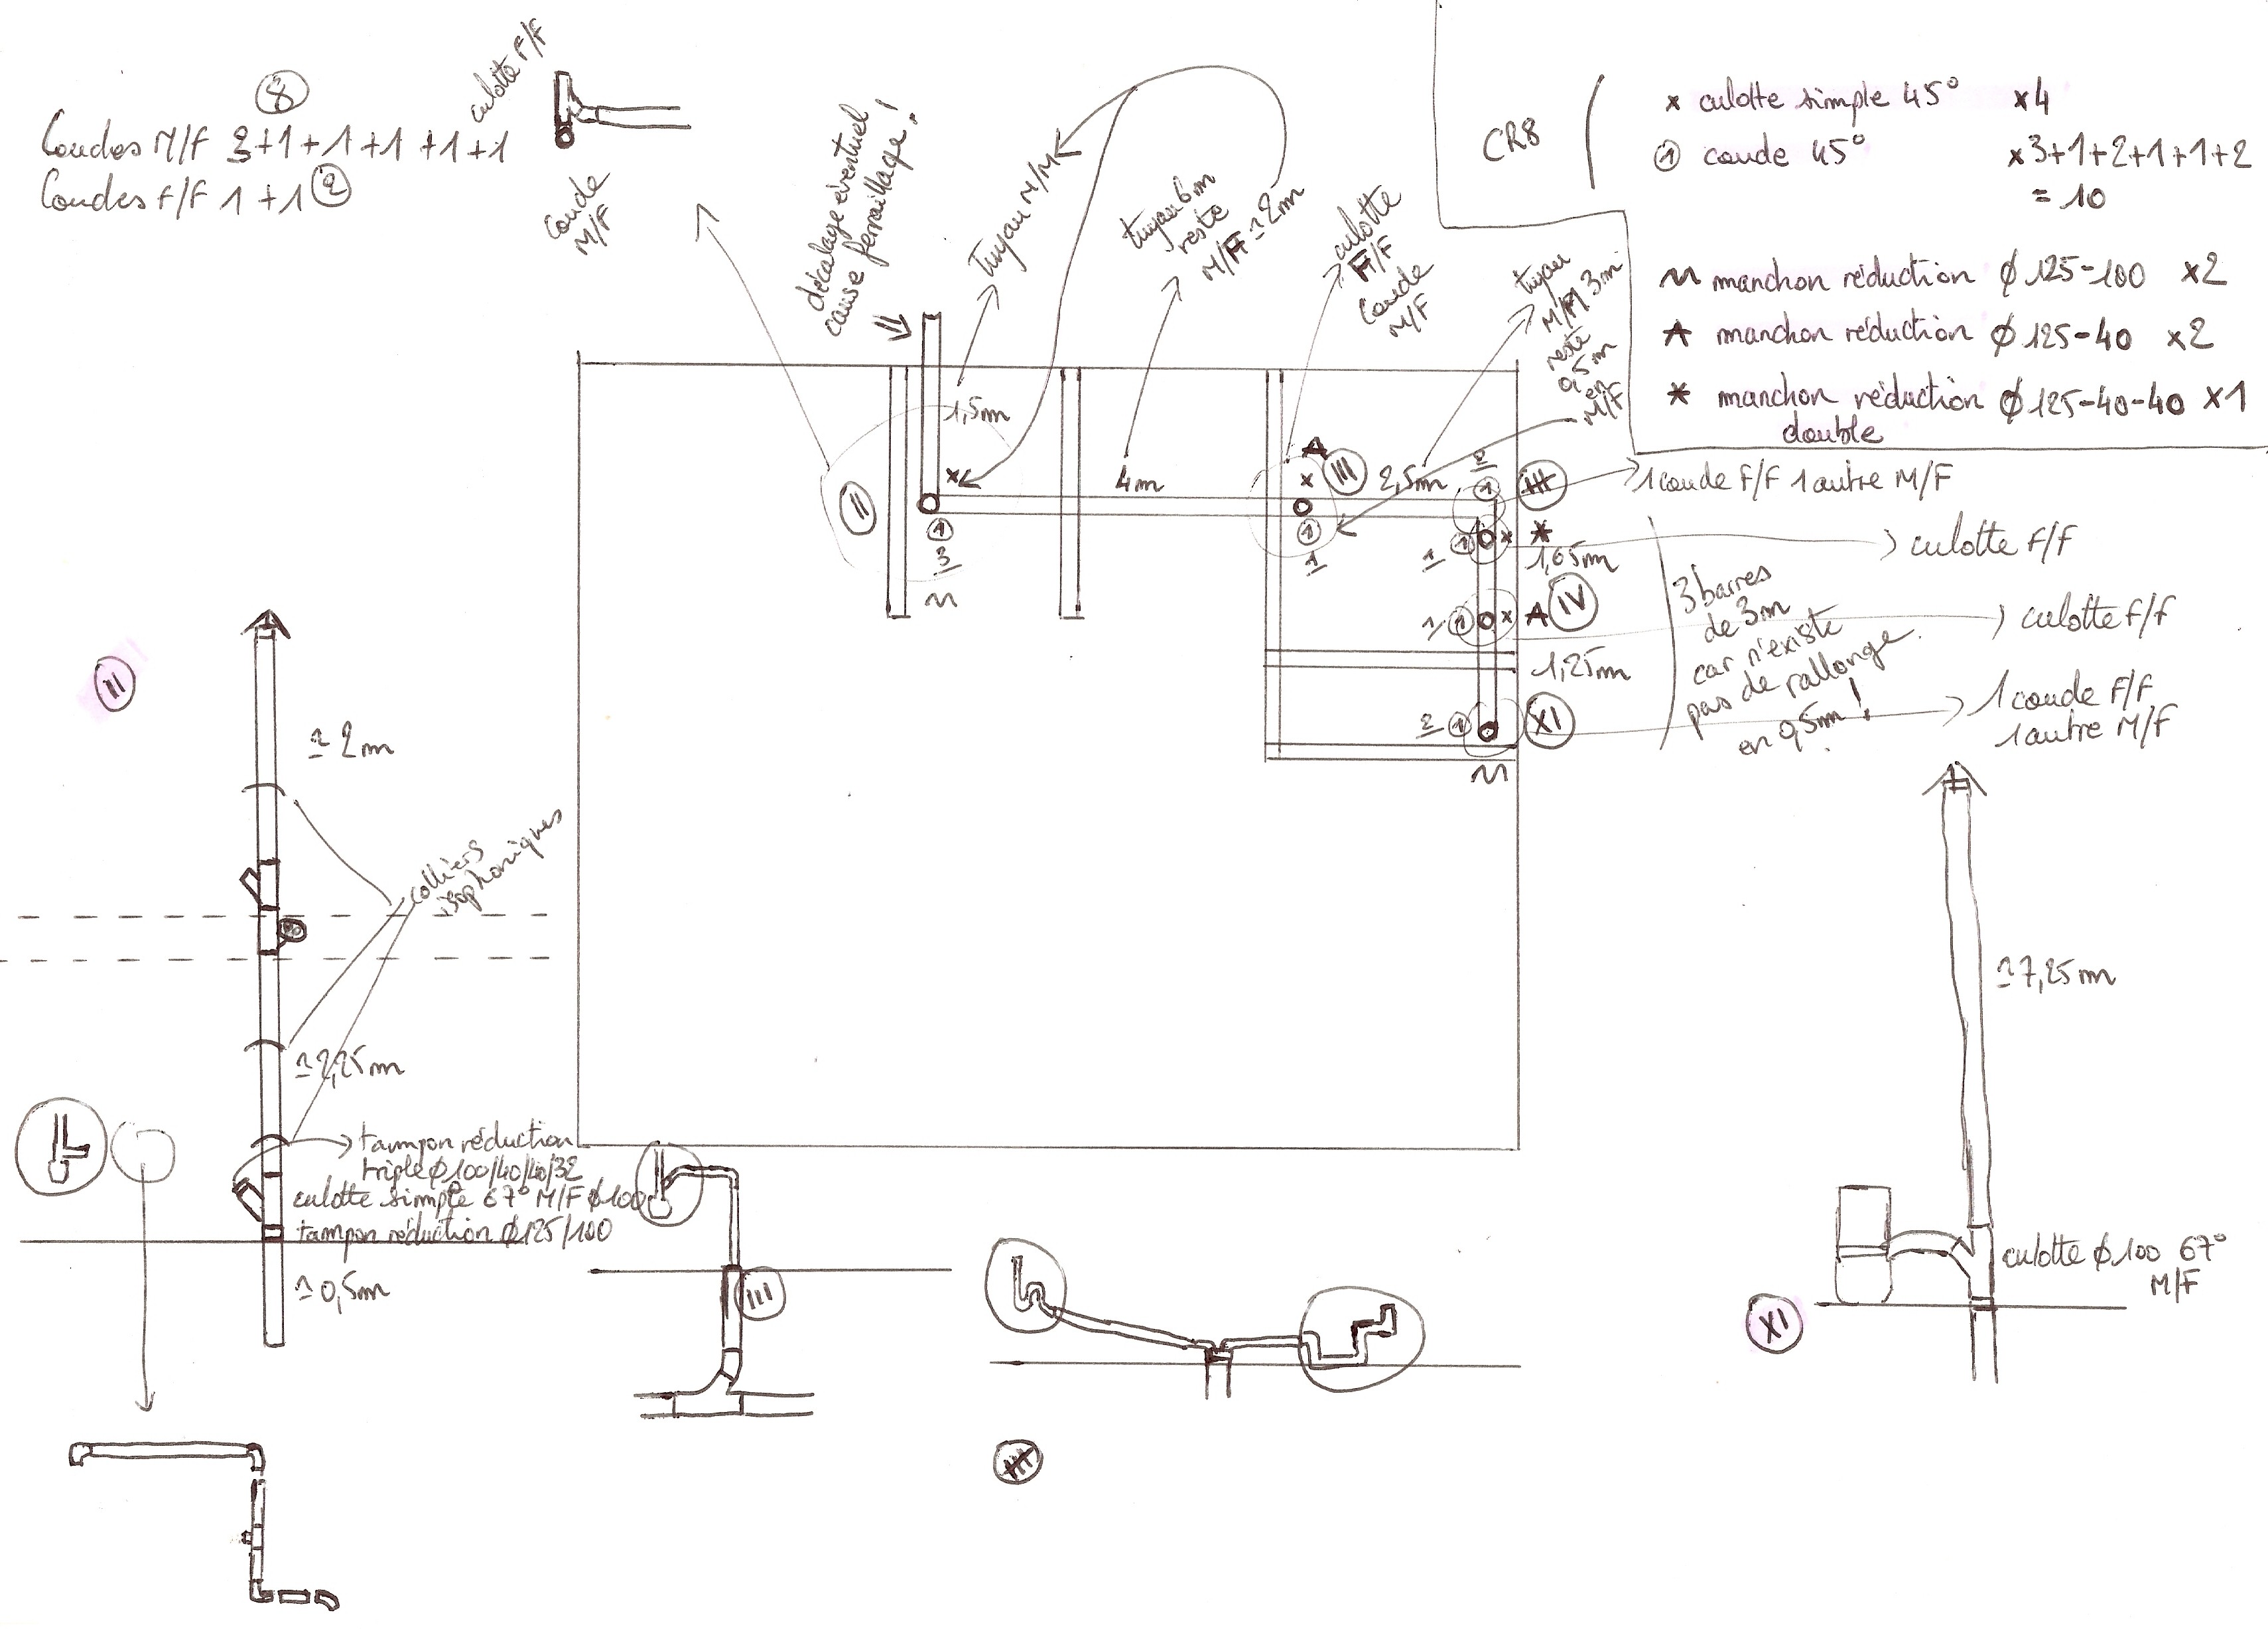 8
Coudes M/F 3+1+1+1+1+1
Coudes F/F 1+1 2
culotte F/F
Coude
M/F
décalage éventuel
cause ferraillage !
tuyau M/M
tuyau 6m
reste
M/F ≃ 2m
culotte
F/F
Coude
M/F
tuyau
M/M 3m
reste
0,5m
en
M/F
CR8
x culotte simple 45° x4
1 coude 45° x3+1+2+1+1+2
= 10
manchon réduction ϕ 125-100 x2
manchon réduction ϕ 125-40 x2
* manchon réduction ϕ 125-40-40 x1
double
1,5m
II
x
1
3
4m
x
III
1
1
2,5m
2
1
IIII
1 coude F/F 1 autre M/F
1 1 x *
1,65m
culotte F/F
1 1 x
IV
culotte F/F
1,25m
3 barres
de 3m
car n'existe
pas de rallonge
en 0,5m !
2 1
XI
1 coude F/F
1 autre M/F
II
≃ 2m
colliers
isophoniques
≃ 2,25m
tampon réduction
triple ϕ 100/40/40/32
culotte simple 67° M/F ϕ100
tampon réduction ϕ125/100
≃ 0,5m
III
IIII
≃ 7,25m
culotte ϕ 100 67°
M/F
XI